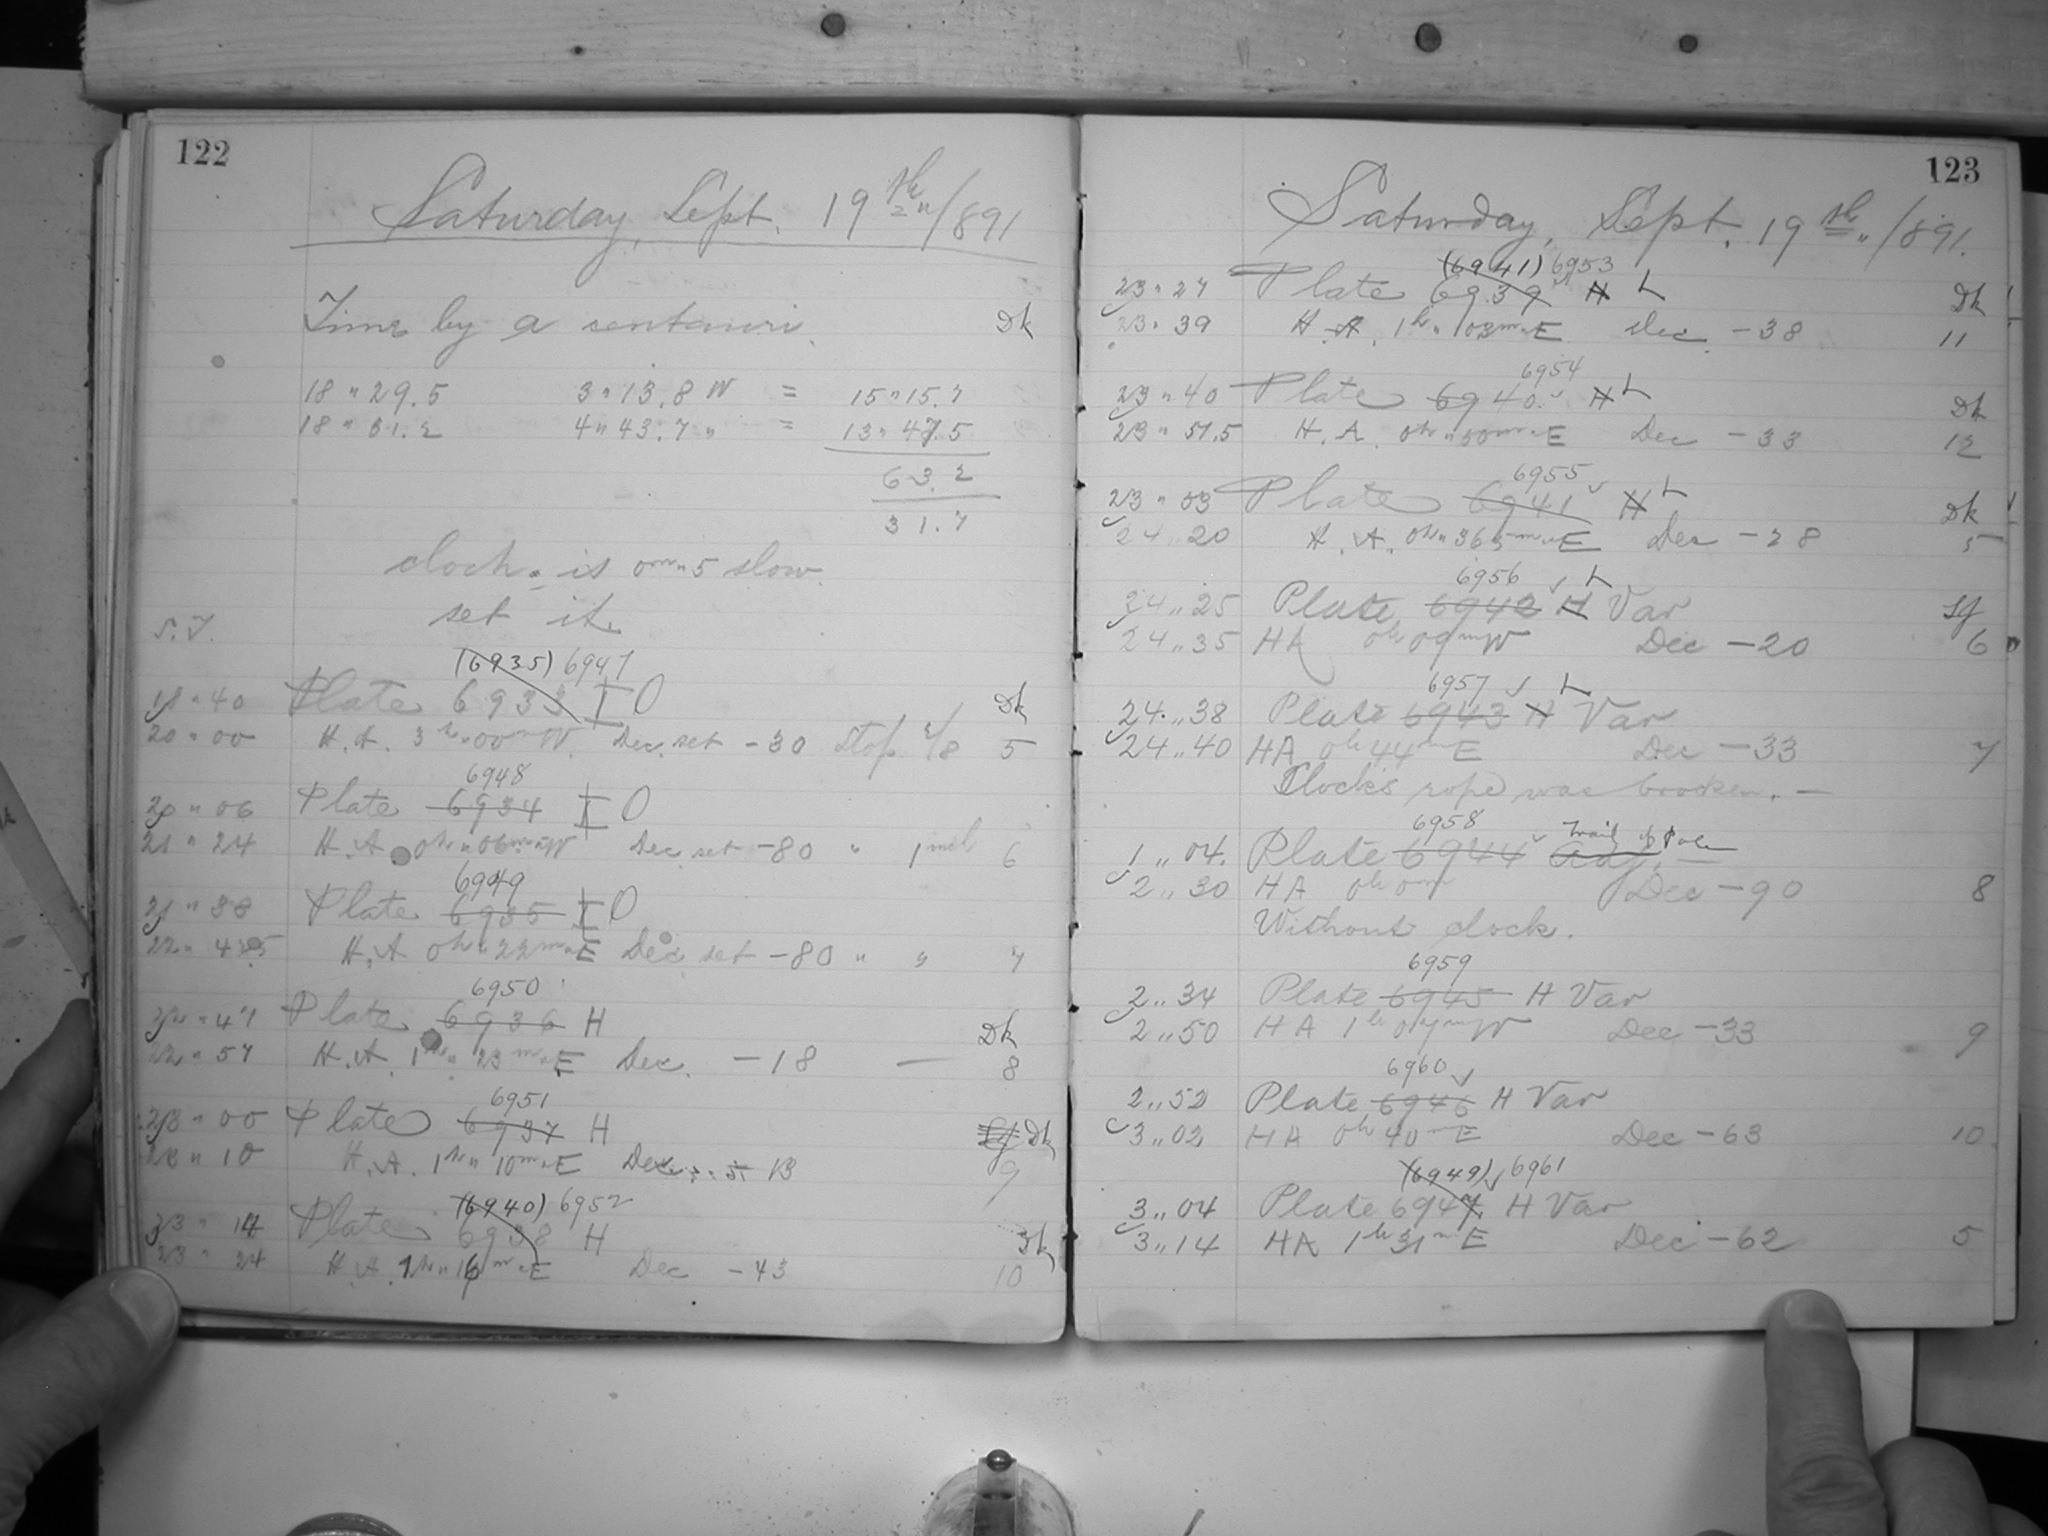 122
Saturday, Sept. 19th 1891
Time by a centauri. Dk
18 " 29.5 3 " 13.8 W = 15 " 15.7
18 " 31.2 4 " 43.7 " = 13 " 47.5
63.2
31.7
clock is 0m " 5 slow.
set it.
S.T.
(6935) 6947
18 " 40 Plate 6933 I O Dk
20 " 00 H.A. 3h " 00m W. Dec. set -30 Stop 5
6948
20 " 06 Plate 6934 I O
21 " 24 H.A. 0h " 06m W Dec. set -80 " 1 inch 6
6949
21 " 38 Plate 6935 I O
H.A 0h " 22m E Dec. set -80 " " 7
6950
22 " 47 Plate 6936 H Dk
22 " 57 H.A. 1h " 23m E Dec. -18 — 8
6951
23 " 00 Plate 6937 H Dk
23 " 10 H.A. 1h " 10m E Dec. 9
(6940) 6952
23 " 14 Plate 6938 H Dk
23 " 24 H.A. 1h " 16m E Dec -43 10
123
Saturday, Sept. 19th 1891.
(6941) 6953
23 " 27 Plate 6939 H L Dk
23 " 39 H.A. 1h " 03m E Dec. -38 11
6954
23 " 40 Plate 6940 H L Dk
23 " 51.5 H.A. 0h " 50m E Dec -33 12
6955
23 " 53 Plate 6941 H L Dk
24 " 20 H.A. 0h " 36.5m E Dec -28 5
6956 L
24 " 25 Plate 6942 H Var Sf
24 " 35 HA 0h 09m W Dec -20 6
6957 L
24 " 38 Plate 6943 H Var
24 " 40 HA 0h 44m E Dec -33 7
Clock's rope was brooken. —
6958 Trail of Pole
1 " 04. Plate 6944 Adj. —
2 " 30 HA 0h 0m Dec -90 8
Without clock.
6959
2 " 34 Plate 6945 H Var
2 " 50 HA 1h 07m W Dec -33 9
6960
2 " 52 Plate 6946 H Var
3 " 02 HA 0h 40m E Dec -63 10
(6949) 6961
3 " 04 Plate 6947 H Var
3 " 14 HA 1h 31m E Dec -62 5